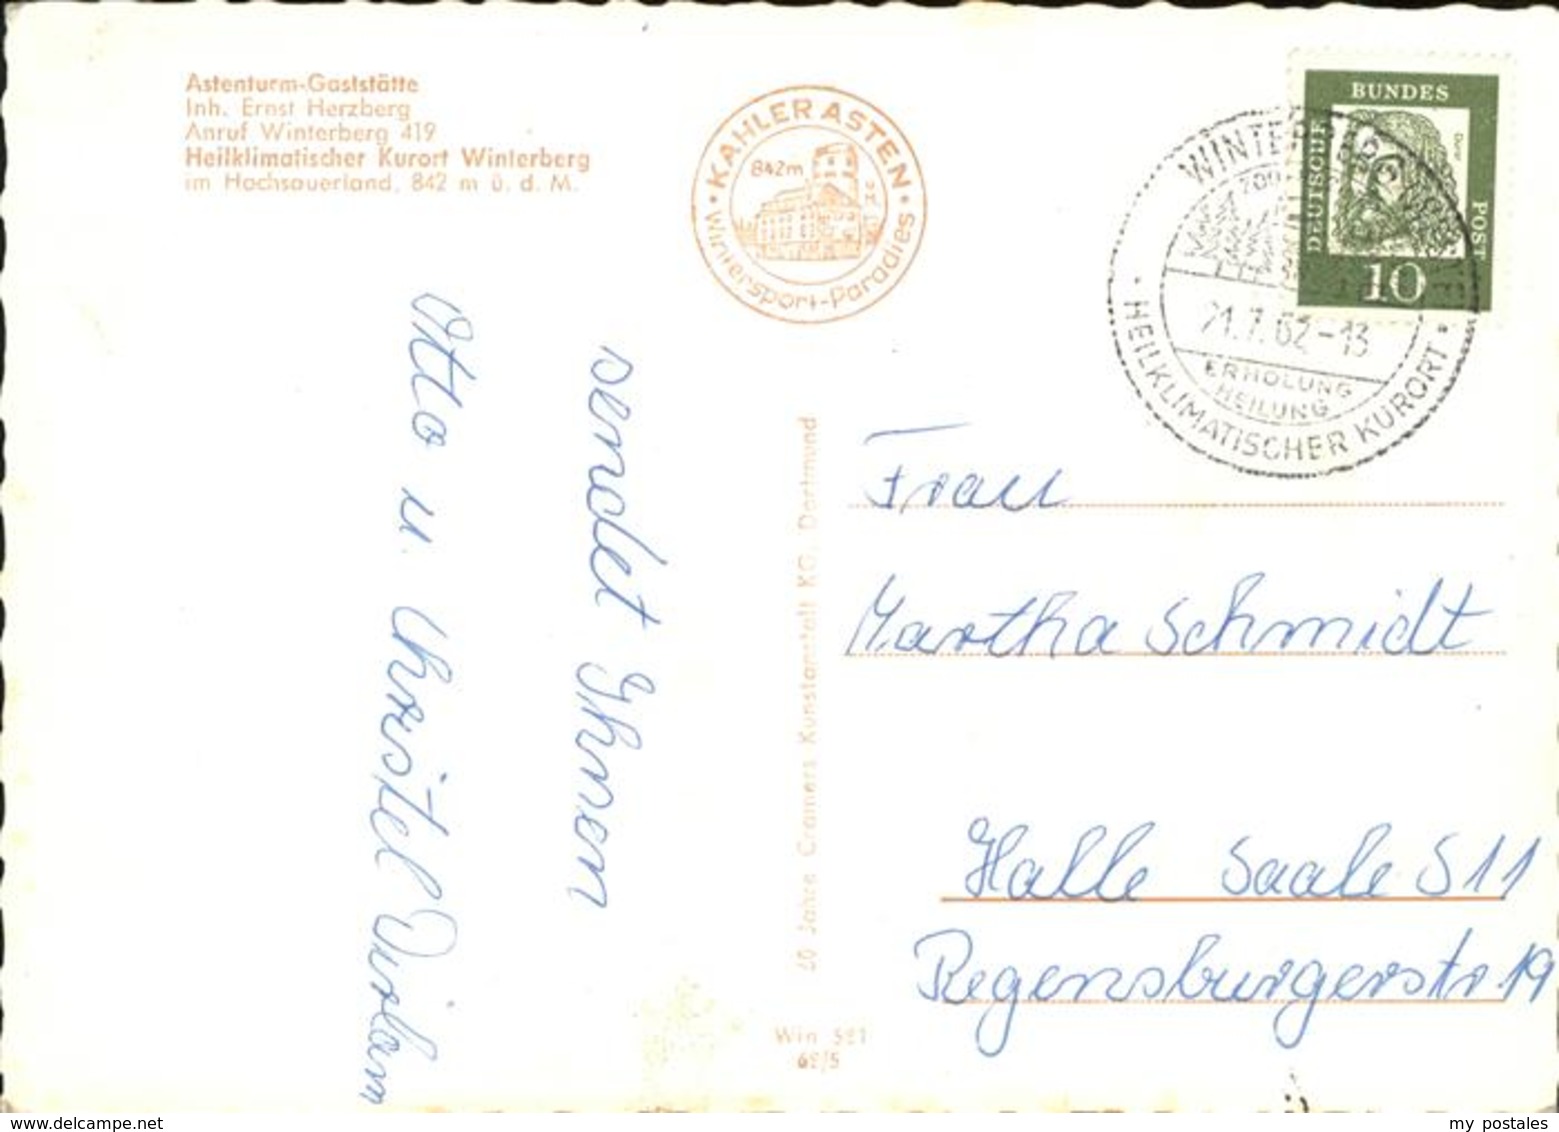 Astenturm-Gaststätte
Inh. Ernst Herzberg
Anruf Winterberg 419
Heilklimatischer Kurort Winterberg
im Hochsauerland, 842 m ü. d. M.
KAHLER ASTEN
842 m
Wintersport-Paradies
BUNDES
POST
DEUTSCHE
Dürer
10
WINTERBERG
21.7.62-13
ERHOLUNG
HEILUNG
HEILKLIMATISCHER KURORT
sendet Ihnen
Otto u. Christel
40 Jahre Cramers Kunstanstalt KG, Dortmund
Frau
Martha Schmidt
Halle Saale S11
Regensburgerstr 19
Win 581
62/5
my postales
delcampe.net